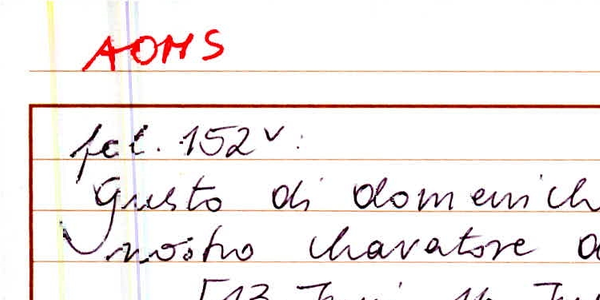 AOMS
fol. 152v:
Gusto di domenich
nostro chavatore
[13